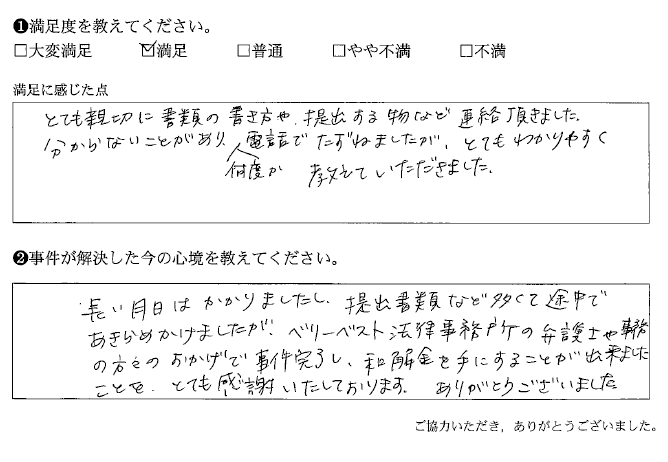 ❶満足度を教えてください。
□大変満足 ☑満足 □普通 □やや不満 □不満
満足に感じた点
とても親切に書類の書き方や、提出する物など連絡頂きました。
分からないことがあり、電話でたずねましたが、とてもわかりやすく
何度か 教えていただきました。
❷事件が解決した今の心境を教えてください。
長い月日はかかりましたし、提出書類など多くて途中で
あきらめかけましたが、ベリーベスト法律事務所の弁護士や事務
の方々のおかげで事件完了し、和解金を手にすることが出来ました
ことを、とても感謝いたしております。 ありがとうございました
ご協力いただき，ありがとうございました。